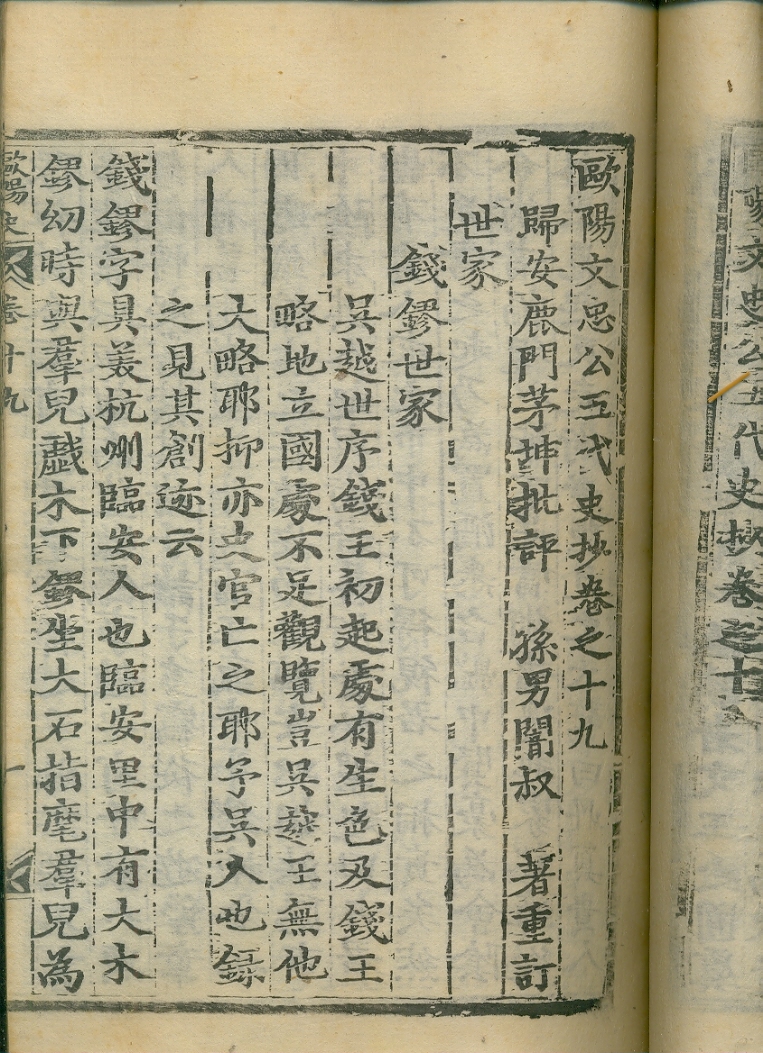 歐陽文忠公五代史抄卷之十九
歸安鹿門茅坤批評 孫男闇叔 著重訂
世家
錢鏐世家
吳越世序錢王初起處有生色及錢王
略地立國處不足觀覽豈吳越王無他
大略耶抑亦史官亡之耶予吳人也錄
之見其創迹云
錢鏐字具美杭州臨安人也臨安里中有大木
鏐幼時與羣兒戲木下鏐坐大石指麾羣兒為
歐陽史 卷十九 一